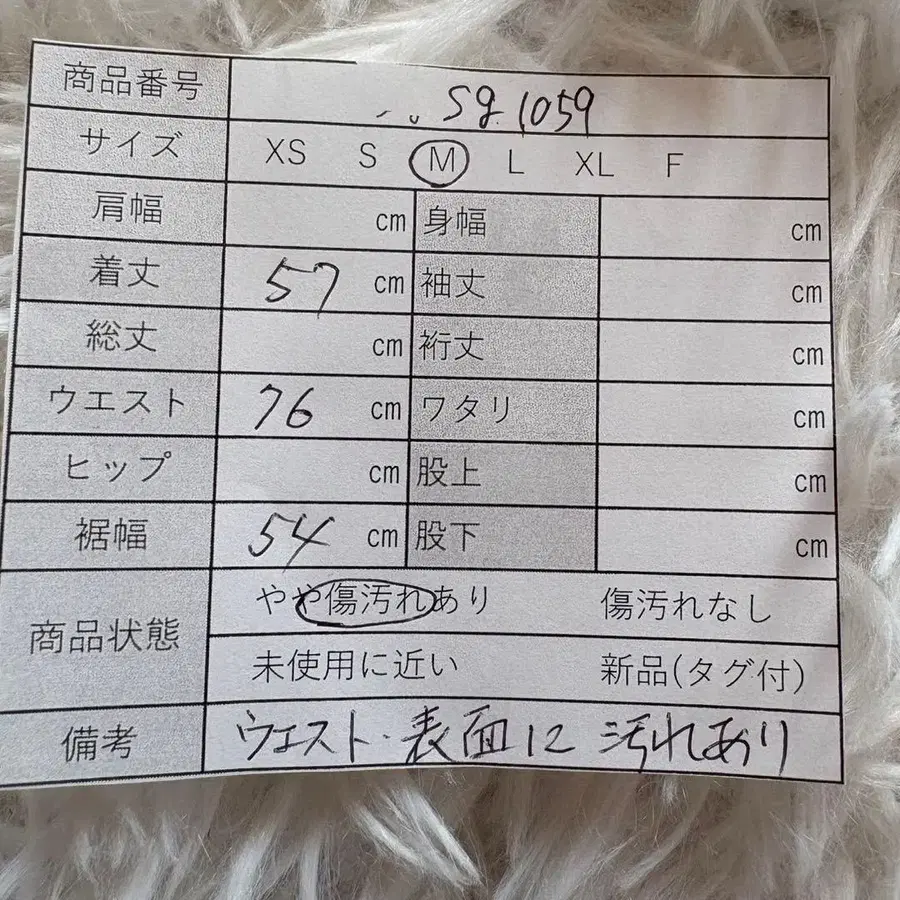 商品番号 sg.1059
サイズ XS S M L XL F
肩幅 cm 身幅 cm
着丈 57 cm 袖丈 cm
総丈 cm 裄丈 cm
ウエスト 76 cm ワタリ cm
ヒップ cm 股上 cm
裾幅 54 cm 股下 cm
商品状態 やや傷汚れあり 傷汚れなし
未使用に近い 新品(タグ付)
備考 ウエスト・表面に汚れあり